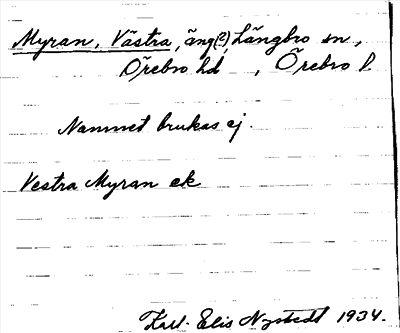 Myran, Västra, äng(?), Längbro sn,
Örebro hd, Örebro l
Namnet brukas ej.
Vestra Myran ek
Karl-Elis Nystedt 1934.